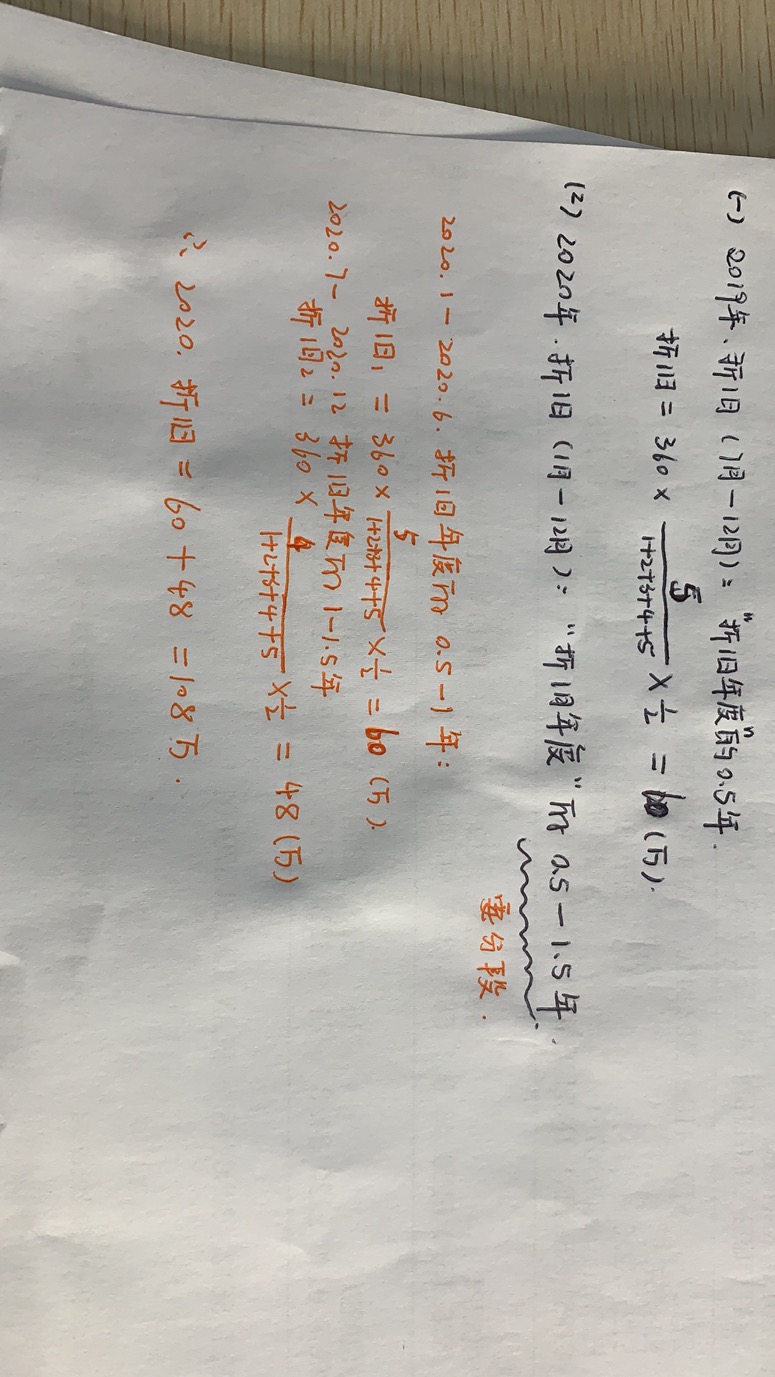 (一) 2019年、折旧（7月－12月）：“折旧年度”的0.5年.
折旧 = 360 × 5/(1+2+3+4+5) × 1/2 = 60（万）.
(2) 2020年.折旧（1月－12月）：“折旧年度”的 0.5－1.5年.
要分段.
2020.1－2020.6.折旧年度的 0.5－1年：
折旧₁ = 360 × 5/(1+2+3+4+5) × 1/2 = 60（万）.
2020.7－2020.12 折旧年度的 1－1.5年
折旧₂ = 360 × 4/(1+2+3+4+5) × 1/2 = 48（万）
∴ 2020.折旧 = 60 + 48 = 108万.